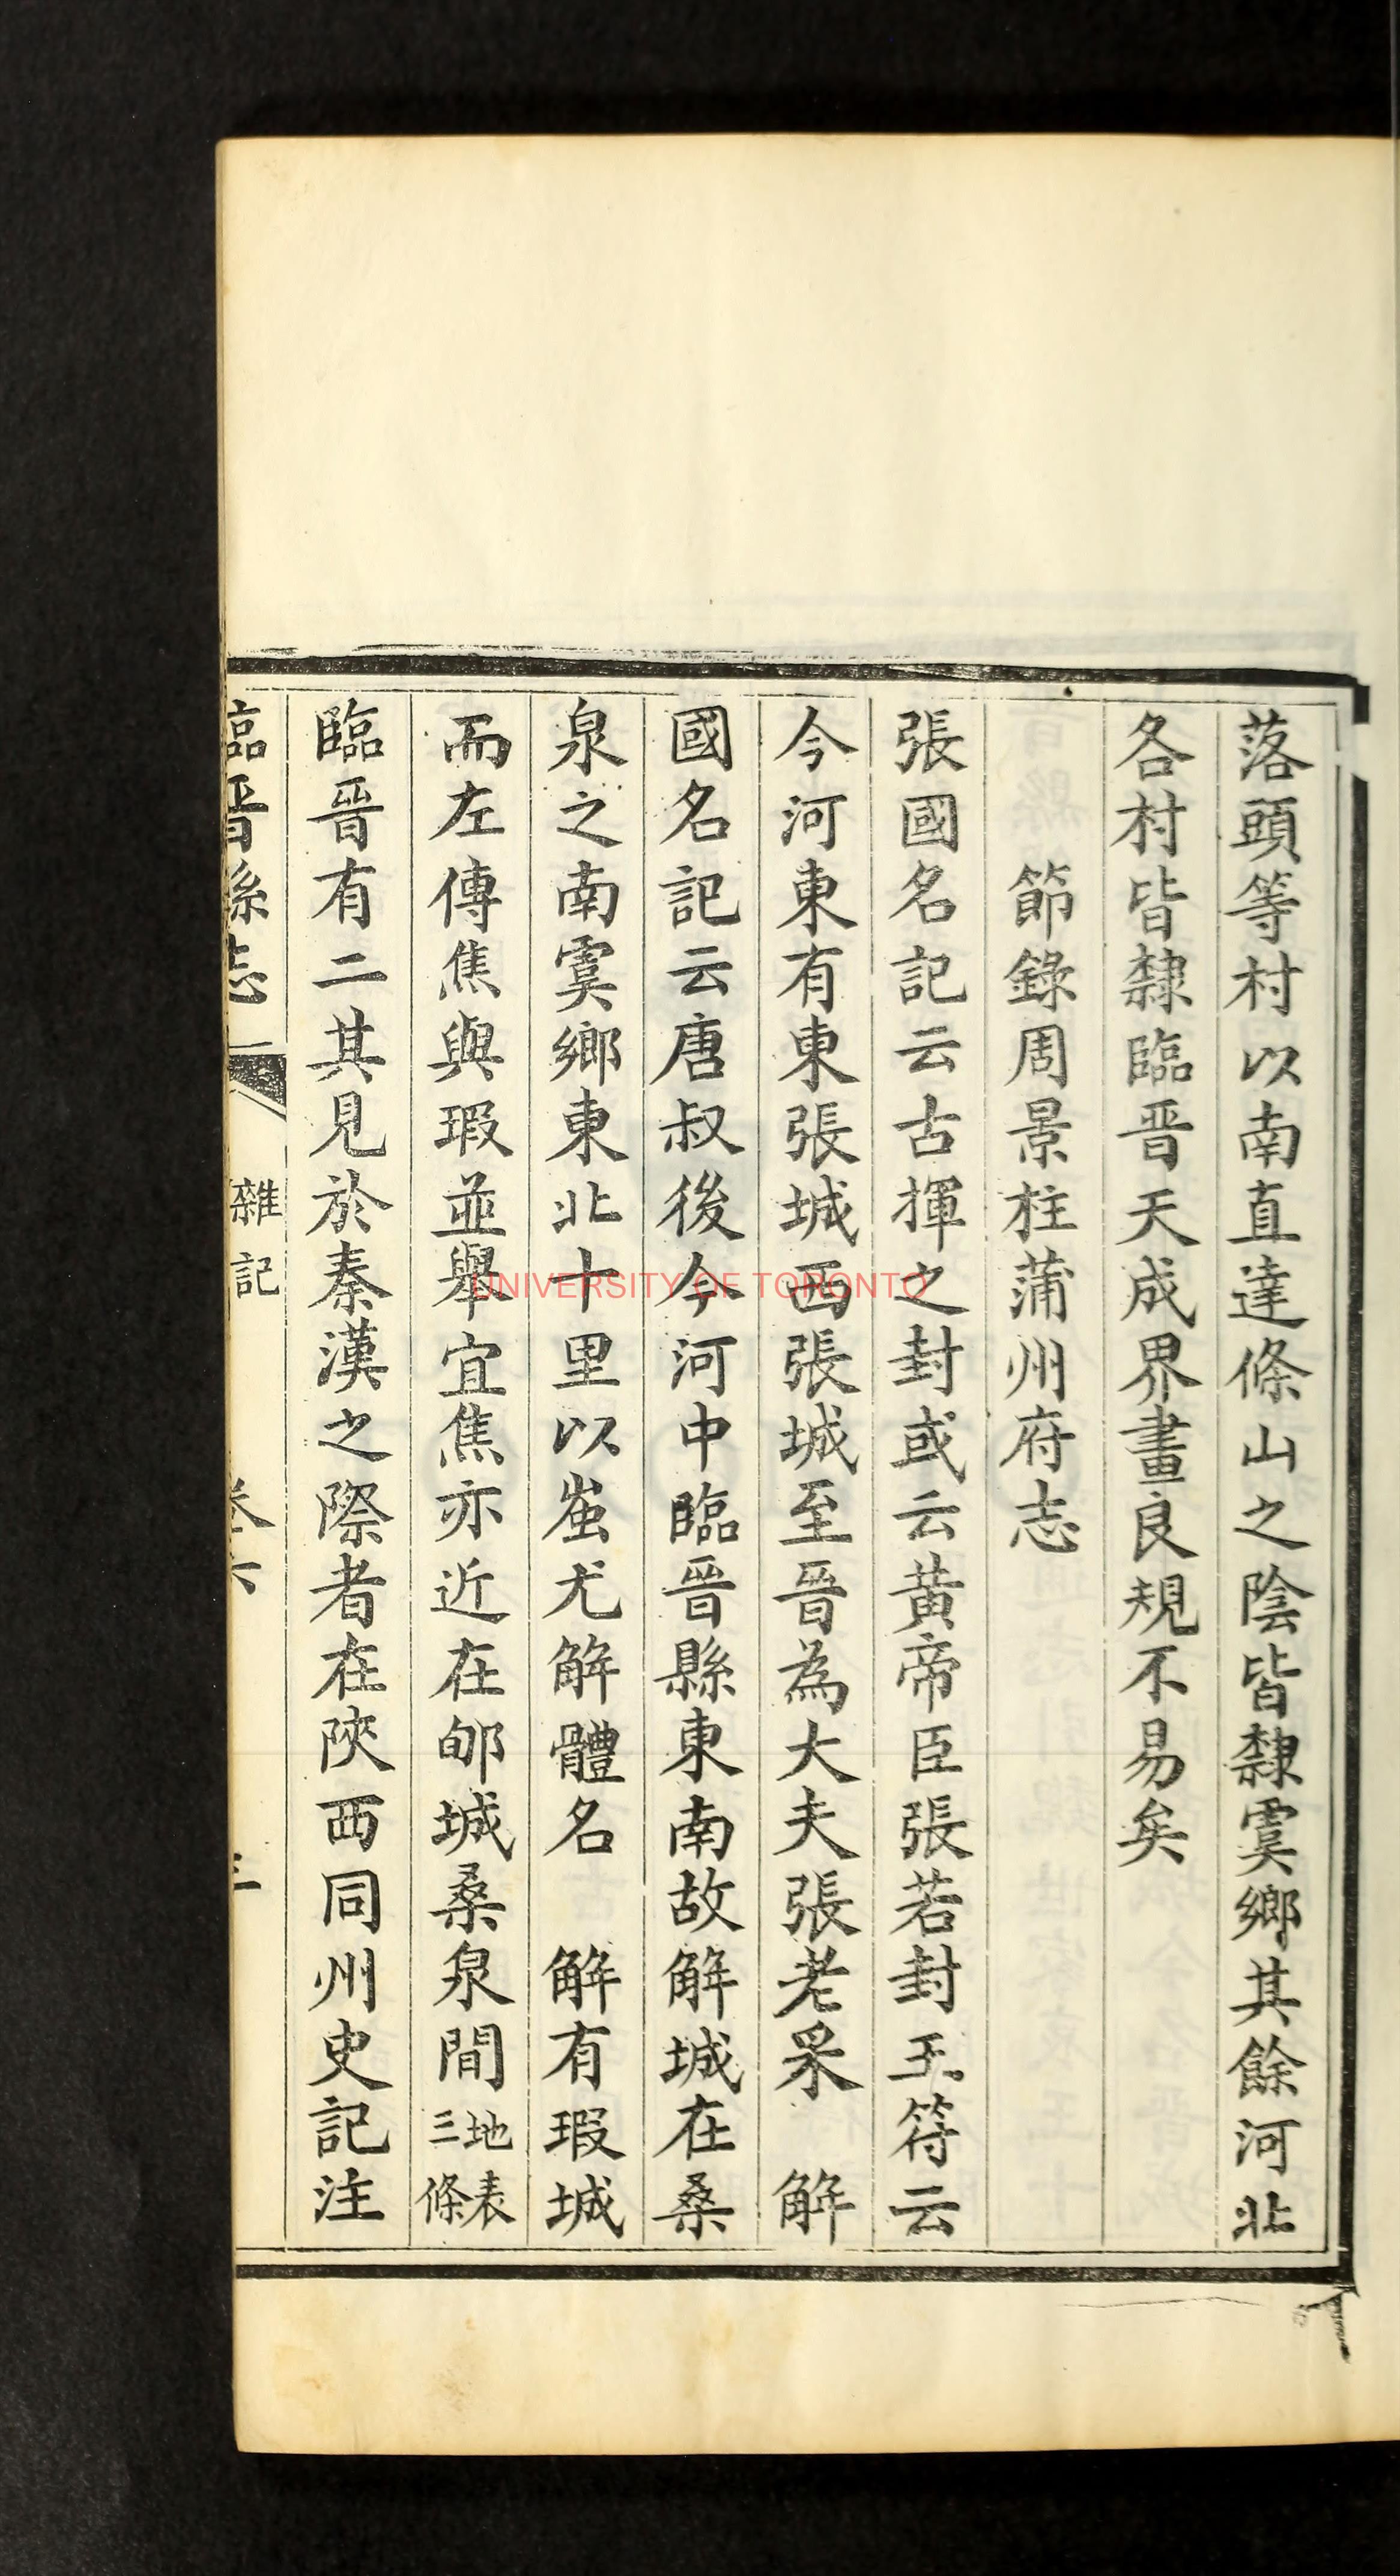 落頭等村以南直達條山之陰皆隸虞鄉其餘河北
各村皆隸臨晋天成界畫良規不易矣
節錄周景柱蒲州府志
張國名記云古揮之封或云黃帝臣張若封王符云
今河東有東張城西張城至晉為大夫張老采　解
國名記云唐叔後今河中臨晉縣東南故解城在桑
泉之南虞鄉東北十里以蚩尤解體名　解有瑕城
而左傳焦與瑕並舉宜焦亦近在郇城桑泉間地表三條
臨晉有二其見於秦漢之際者在陝西同州史記注
臨晋縣志　雜記　卷六
UNIVERSITY OF TORONTO